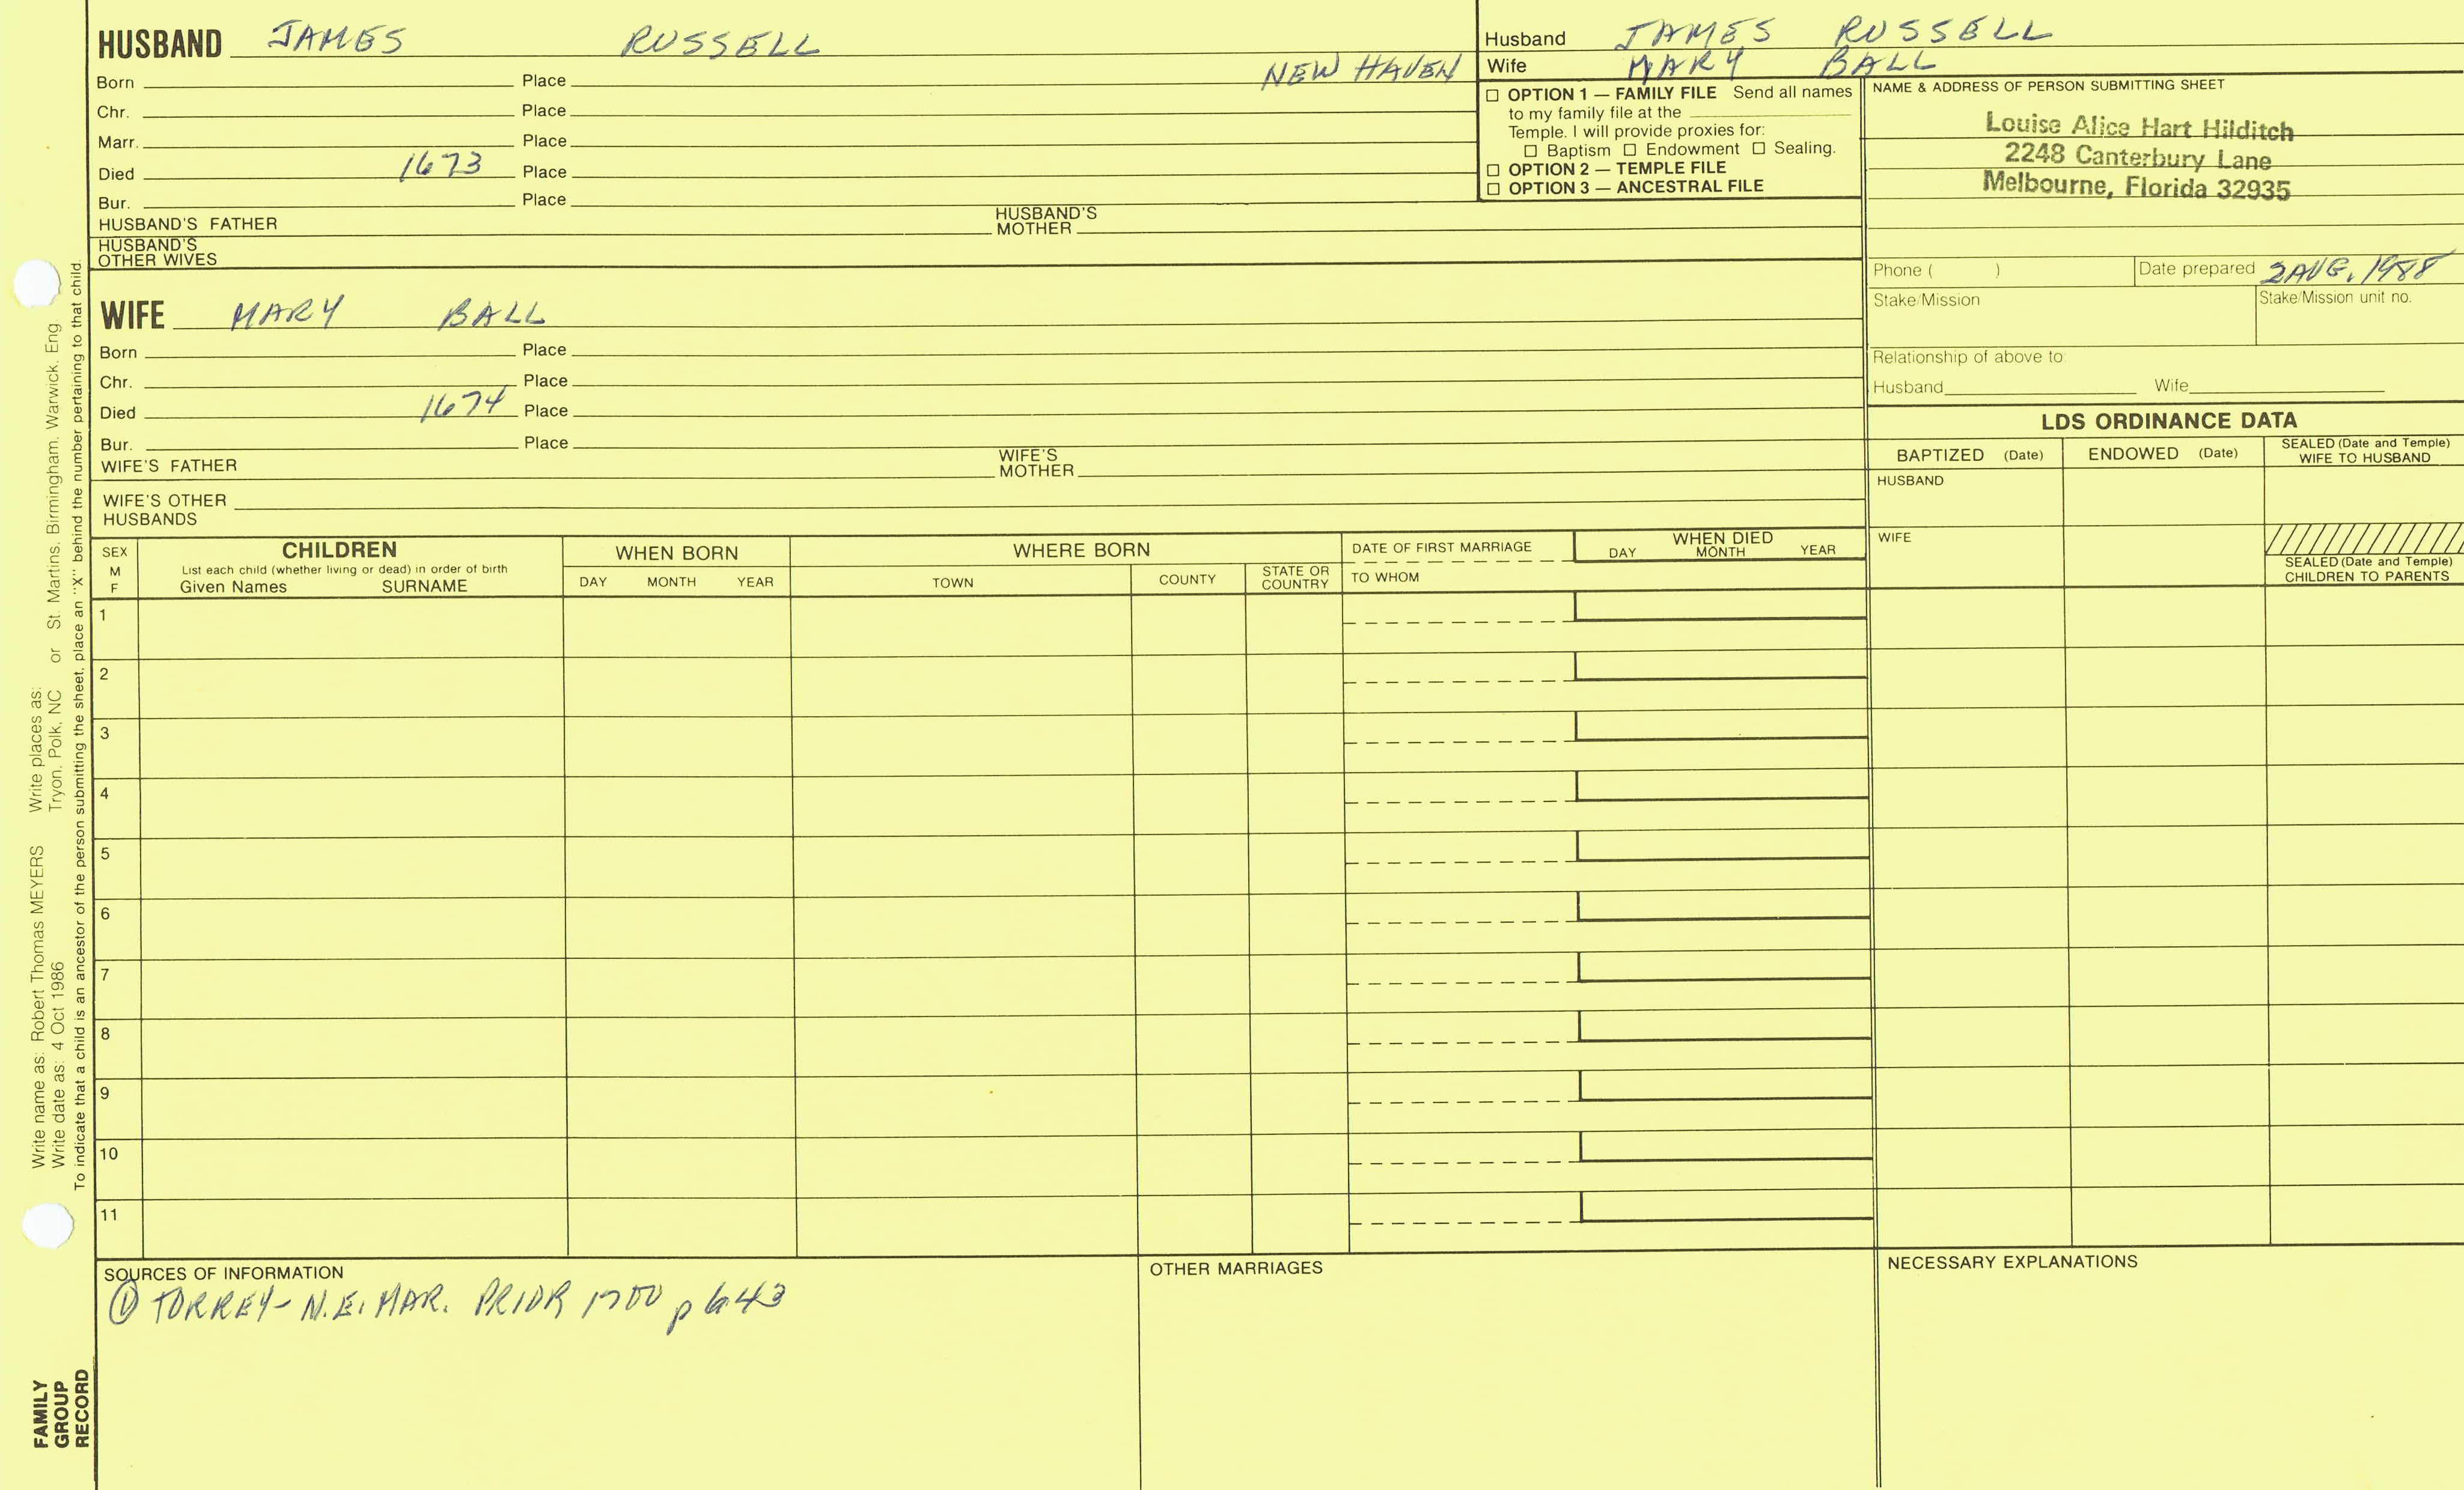 HUSBAND JAMES RUSSELL
Born Place NEW HAVEN
Chr. Place
Marr. Place
Died 1673 Place
Bur. Place
HUSBAND'S FATHER HUSBAND'S MOTHER
HUSBAND'S OTHER WIVES
WIFE MARY BALL
Born Place
Chr. Place
Died 1674 Place
Bur. Place
WIFE'S FATHER WIFE'S MOTHER
WIFE'S OTHER HUSBANDS
Husband JAMES RUSSELL
Wife MARY BALL
☐ OPTION 1 — FAMILY FILE Send all names
to my family file at the
Temple. I will provide proxies for:
☐ Baptism ☐ Endowment ☐ Sealing.
☐ OPTION 2 — TEMPLE FILE
☐ OPTION 3 — ANCESTRAL FILE
NAME & ADDRESS OF PERSON SUBMITTING SHEET
Louise Alice Hart Hilditch
2248 Canterbury Lane
Melbourne, Florida 32935
Phone ( ) Date prepared 2 AUG, 1988
Stake/Mission Stake/Mission unit no.
Relationship of above to:
Husband Wife
LDS ORDINANCE DATA
BAPTIZED (Date) ENDOWED (Date) SEALED (Date and Temple) WIFE TO HUSBAND
HUSBAND
WIFE
SEALED (Date and Temple)
CHILDREN TO PARENTS
SEX M F
CHILDREN
List each child (whether living or dead) in order of birth
Given Names SURNAME
WHEN BORN
DAY MONTH YEAR
WHERE BORN
TOWN COUNTY STATE OR COUNTRY
DATE OF FIRST MARRIAGE
TO WHOM
WHEN DIED
DAY MONTH YEAR
1
2
3
4
5
6
7
8
9
10
11
SOURCES OF INFORMATION
① TORREY- N.E. MAR. PRIOR 1700 p 643
OTHER MARRIAGES
NECESSARY EXPLANATIONS
Write name as: Robert Thomas MEYERS Write places as:
Write date as: 4 Oct 1986 Tryon, Polk, NC or St. Martins, Birmingham, Warwick, Eng
To indicate that a child is an ancestor of the person submitting the sheet, place an "X" behind the number pertaining to that child.
FAMILY
GROUP
RECORD